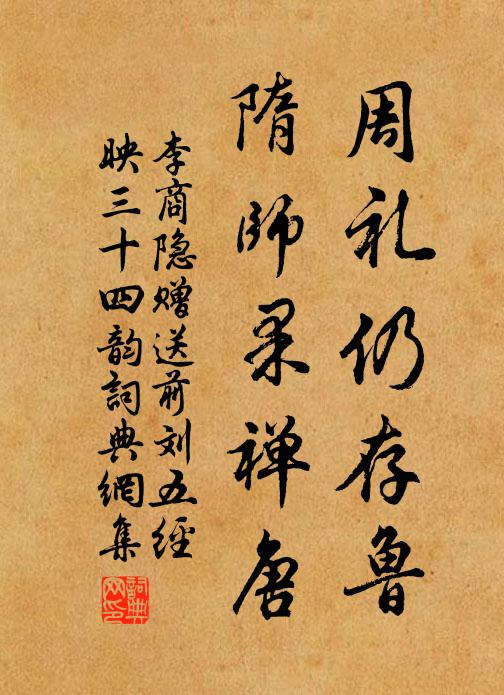 周礼仍存鲁
隋师果禅唐
李商隐赠送前刘五经
映三十四韵词典网集
詞典
网印